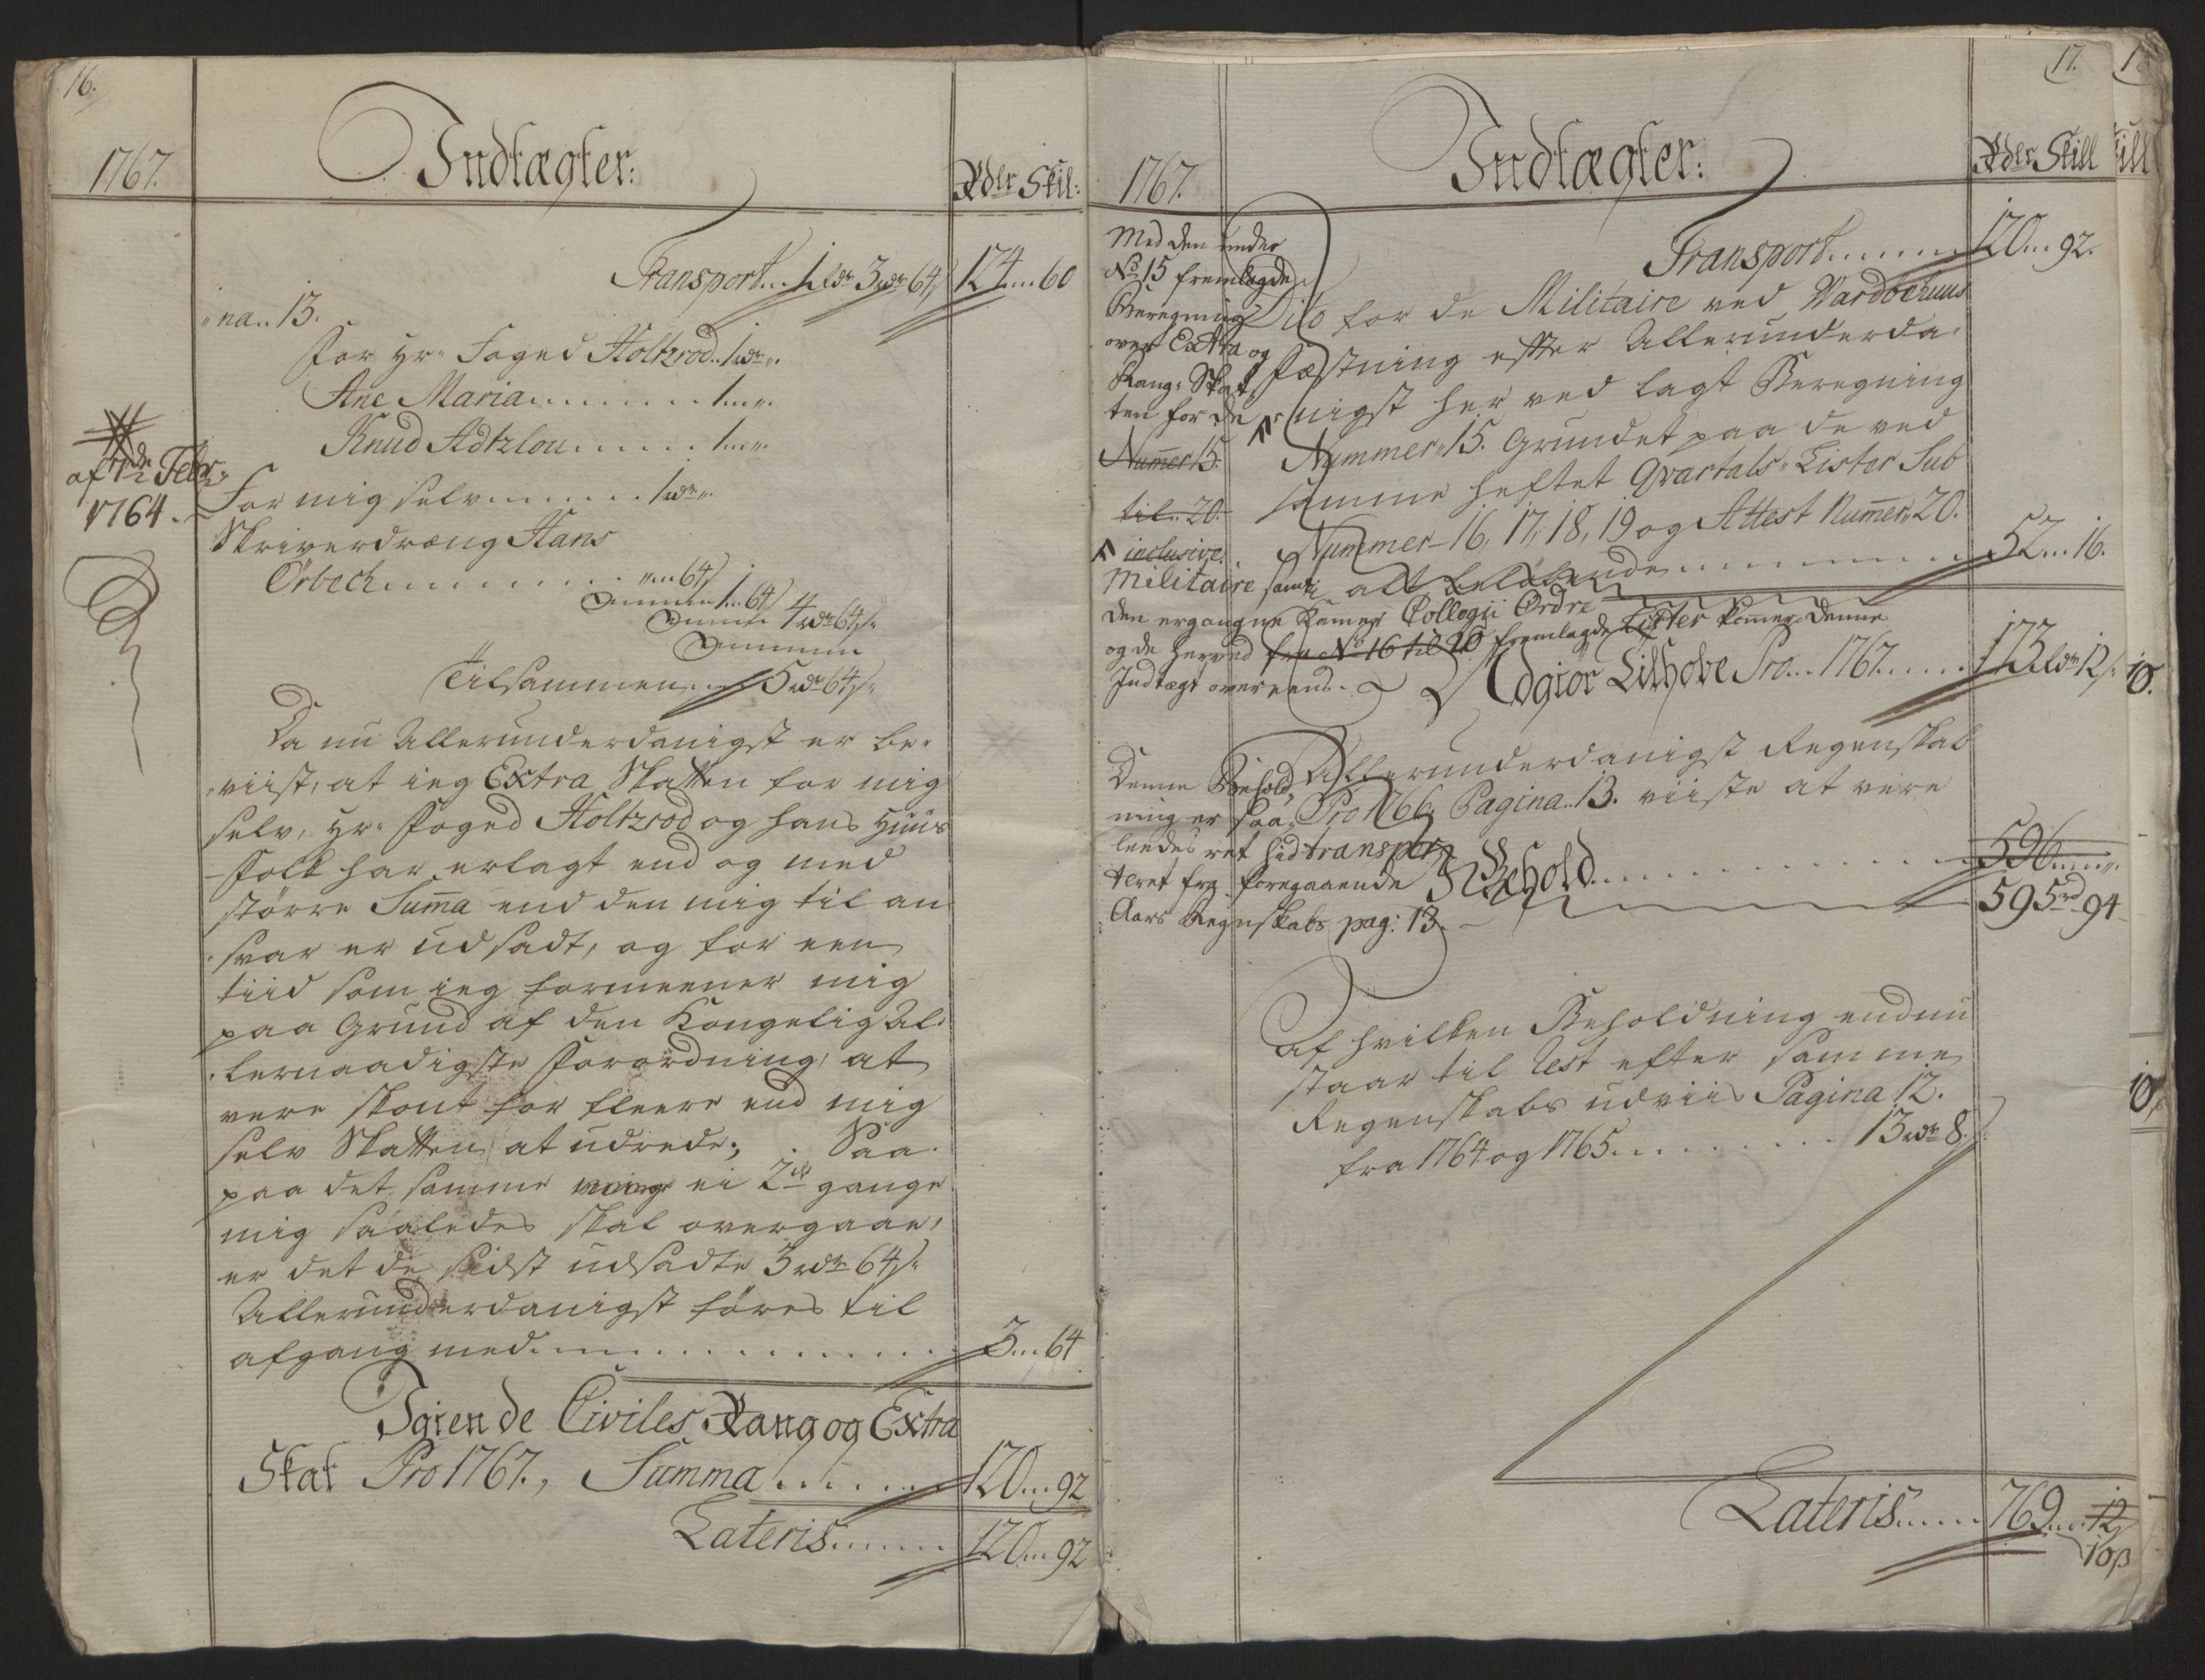 16.
1767.
Indtægter:
Rdlr Skil:
Transport... 1 rdr 3 rdr 64
124.... 60
"na.. 13.
For Hr: Foged Holtzrod.. 1 rdr ".
Ane Maria........ 1... ".
Knud Adtzlou...... 1... ".
af 1de Febr:
1764.
For mig selv....... 1 rdr ".
Skriverdræng Hans
Örbech......... "... 64
1... 64
4 rdr 64 s:
Tilsammen... 5 rdr 64 s:
Da nu Allerunderdanigst er be„
„viist, at ieg Extra Skatten for mig
selv, Hr: Foged Holtzrod og hans Huus
Folk har erlagt end og med
större Suma end den mig til an
svar er udsadt, og for een
tiid som ieg formeener mig
paa Grund af den Kongelig Al„
„lernaadigste Forordning, at
være skont for fleere end mig
selv Skatten at udrede; Saa
paa det samme ei 2de gange
mig saaledes skal overgaae,
er det de sidst udsadte 3 rdr 64 s:
Allerunderdanigst föres til
afgang med.............
3... 64
Igien de Civiles Rang og Extra
Skat Pro 1767., Summa......
120... 92
Lateris......
120... 92
17.
1767.
Indtægter:
Rdlr Skill
Transport......
120... 92.
Med den under
No 15 fremlagde
Beregning
over Extra og
Rang: Skat„
ten for de
Numer 15.
til.. 20.
inclusive.
Militaire samt
den ergangne Kamer Collegii Ordre
og de herved fra No 16 til 20 fremlagde Lister komer denne
Indtægt overeens.
Dito for de Militaire ved Wardöehuus
Fæstning efter Allerunderda„
„nigst her ved lagt Beregning
Nummer 15. Grundet paa de ved
samme heftet Qvartals Lister Sub
Nummer 16, 17, 18, 19 og Attest Numer 20.
alt belöbende..........
52... 16.
Udgiör Lilhobe Pro... 1767.....
173 rdr 12 s:
10.
Denne Behold„
ning er saa„
ledes ret hid transpor„
teret fra foregaaende
Aars Regnskabs pag: 13.
Allerunderdanigst Regenskab
Pro 1766 Pagina.. 13. viiste at være
Behold...........
596... ".
595 rd 94
Af hvilken Beholdning endnu
staar til Rest efter samme
Regenskabs udviis Pagina 12.
fra 1764 og 1765.......... 13 rdr 8 s:
10
Lateris......
769... 12
10 ß